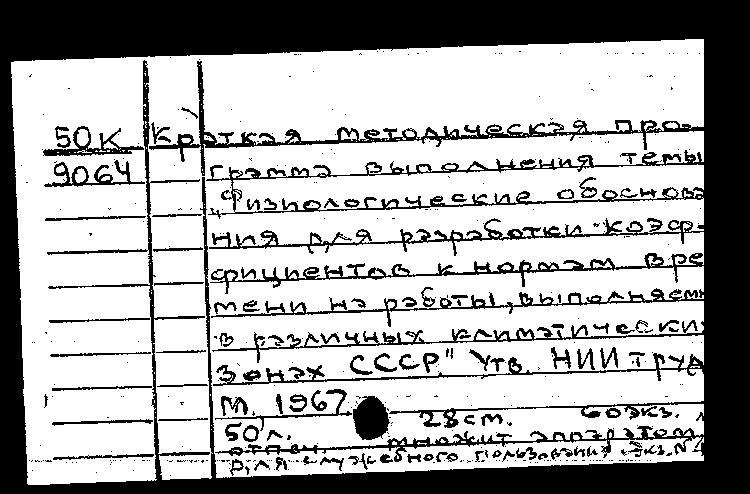 50К Краткая методическая про-
9064 грамма выполнения темы
„Физиологические обоснова
ния для разработки коэф-
фициентов к нормам вре
мени на работы, выполняем
в различных климатических
зонах СССР." Утв. НИИтруд
М. 1967
50л. 28см. 60экз.
отпеч. множит аппаратом
Для служебного пользования Экз. №